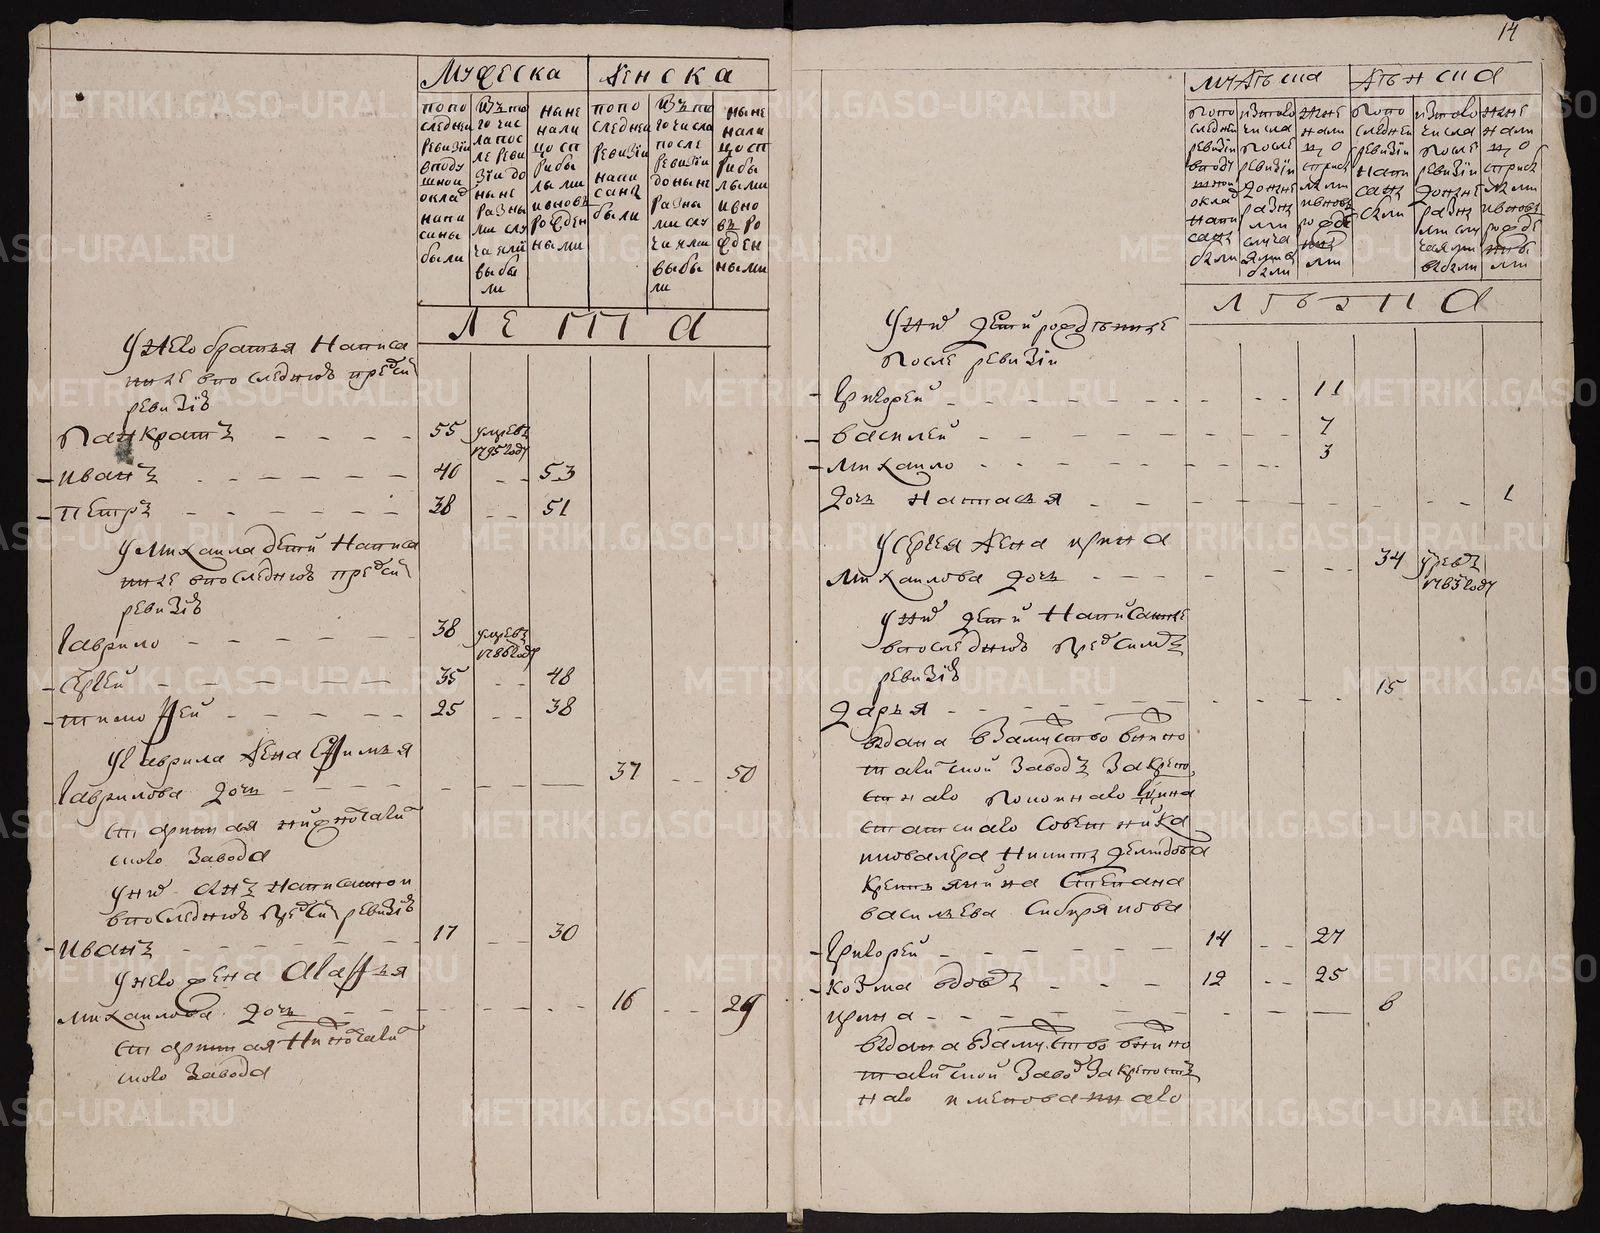 14
Мужеска
Женска
по по
следней
ревизии
в поду
шной
оклад
напи
саны
были
Из то
го чис
ла пос
ле реви
зіи до
ныне
разны
ми слу
чаями
выбы
ли
ныне
нали
цо сп
рибы
лыми
и вновь
рожден
ными
по по
следней
ревизіи
напи
саны
были
Из то
го числа
после
ревизіи
до ныне
разны
ми слу
чаями
выбы
ли
ныне
нали
цо сп
рибы
лыми
и вно
въ ро
жден
ными
Лета
У него братья написа
нные в последней пред сей
ревизіи
Панкратъ 55 умре въ
1795 году
Иванъ 40 53
Петръ 38 51
У Михаила дети написа
нные в последней пред сей
ревизіи
Гаврило 38 умре въ
1786 году
Сергей 35 48
Тимофей 25 38
У Гаврила жена Ефимья
Гаврилова дочь 37 50
старинная нижнотагил
ского завода
У них сынъ написанной
в последней пред сей ревизіи
Иванъ 17 30
У него жена Агафья
Михайлова дочь 16 29
старинная Нижнотагил
ского завода
Мужеска
Женска
По по
следней
ревизіи
в поду
шной
оклад
напи
саны
были
Из того
числа
после
ревизіи
до ныне
разны
ми
случа
ями вы
были
ныне
нали
цо
с прибы
лыми
и вновь
рожде
нны
ми
По по
следней
ревизіи
напи
саны
были
Из того
числа
после
ревизіи
до ныне
разны
ми слу
чаями
выбыли
ныне
нали
цо
с прибы
лыми
и вновь
рожде
нны
ми
Лета
У них детей рожденные
после ревизіи
Григорей 11
Василей 7
Михаило 3
дочь Наталья 1
У Сергея жена Ирина
Михайлова дочь 34 умре въ
1783 году
У них дети написанные
в последней пред симъ
ревизіи
Дарья 15
выдана в замужство в нижно
тагилской заводъ за крепо
стнаго покойнаго господина
статскаго советника
и ковалера Никиты Демидова
крестьянина Степана
Васильева Сибирякова
Григорей 14 27
Козма вдовъ 12 25
Ирина 8
выдана в замужство в нижно
тагилской завод за крепост
наго именованнаго